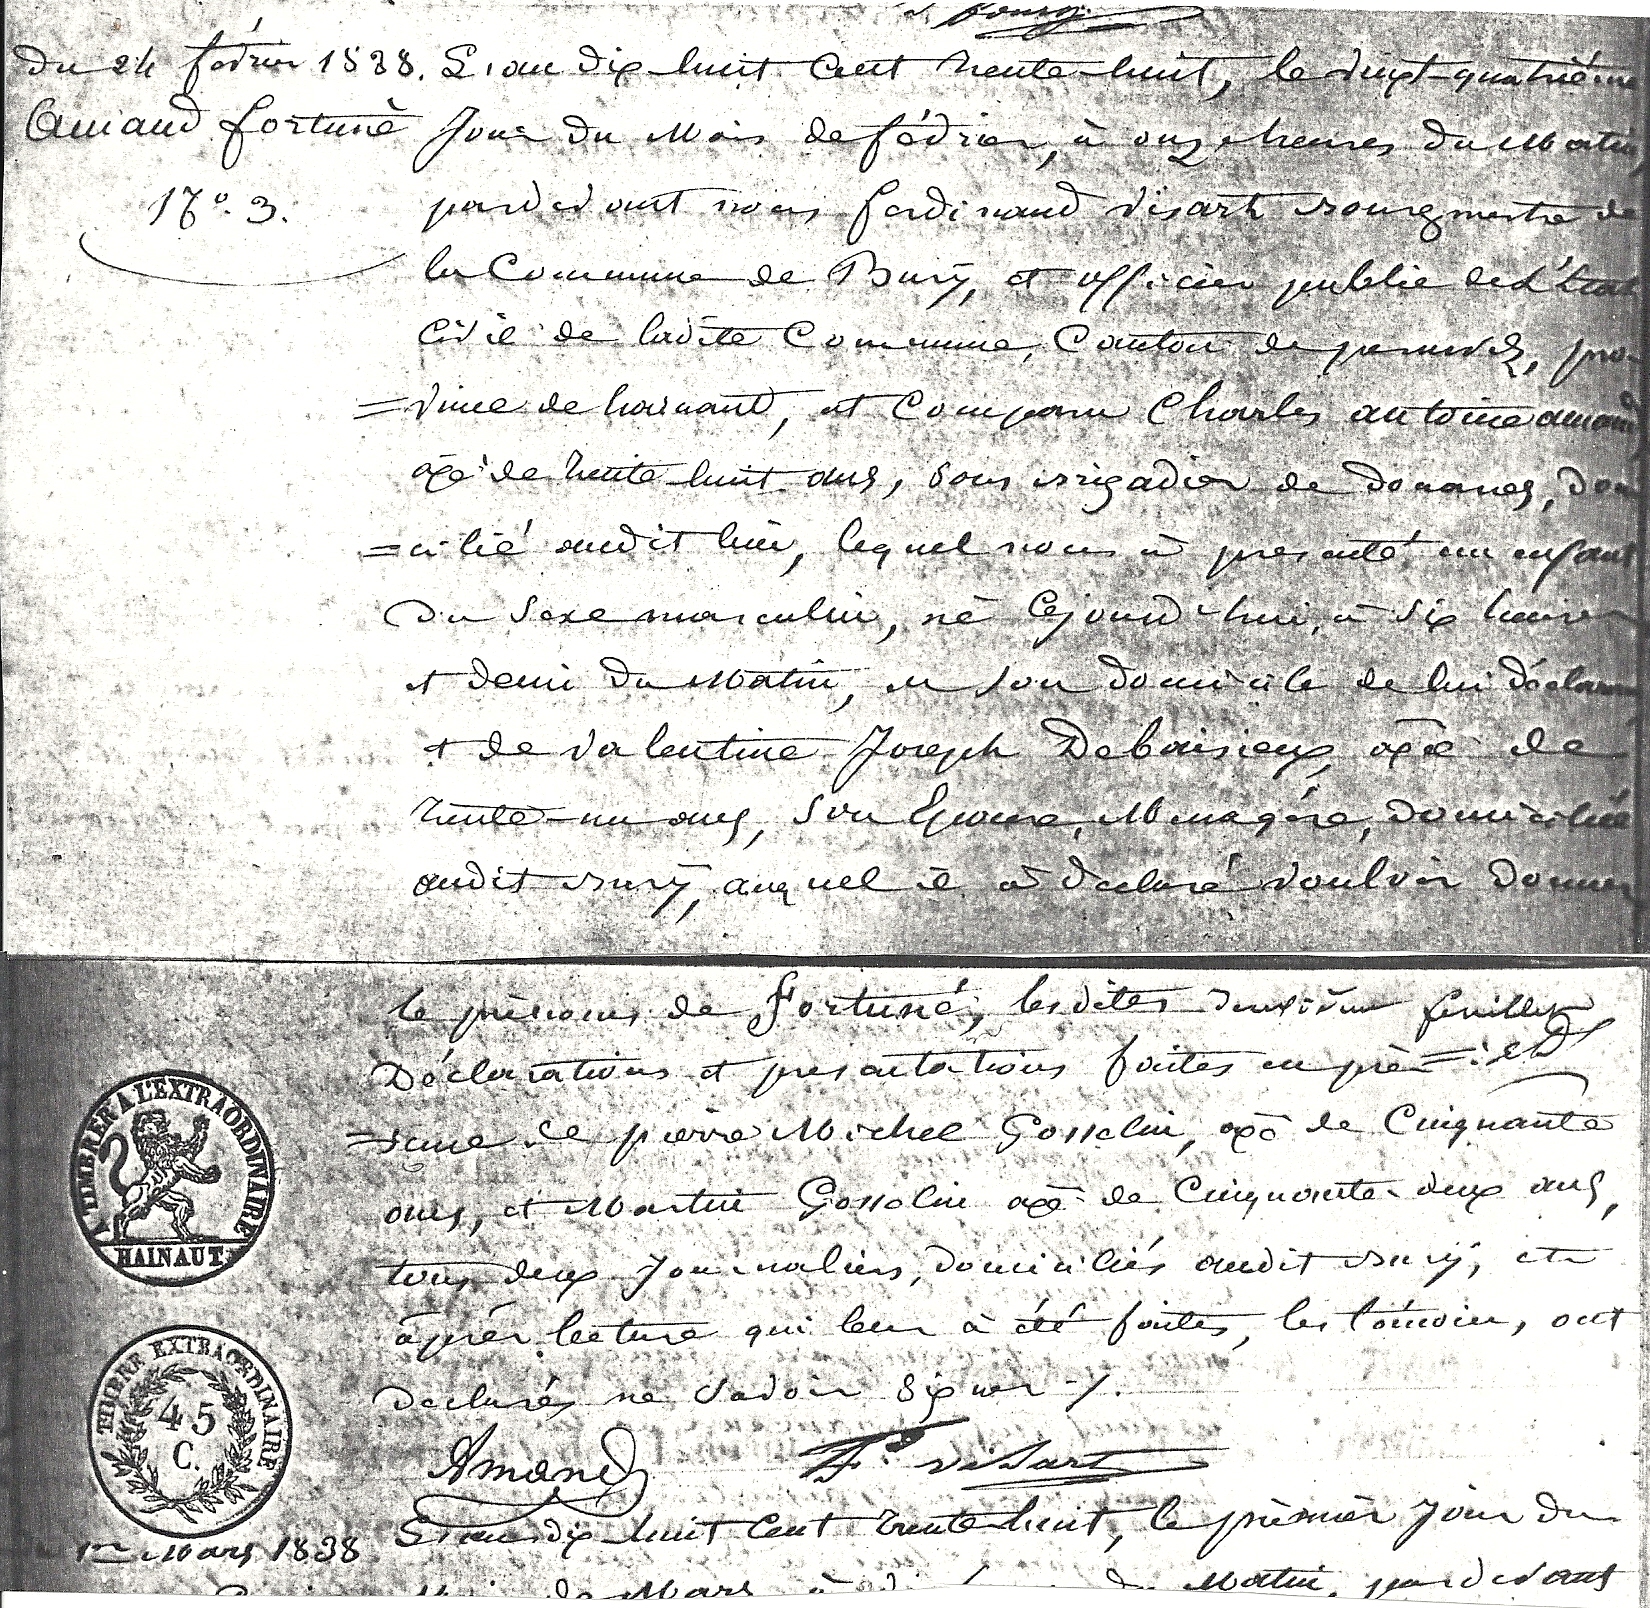 Du 24 février 1838.
Amand fortuné
N°. 3.
L'an dix huit cent trente-huit, le vingt-quatrième
Jour du Mois de février, à onze heures du Matin,
pardevant nous ferdinand visart Bourgmestre de
la Commune de Bury, et officier public de L'état
Civil de ladite Commune, Canton de peruwelz, pro-
=vince de hainaut, est comparu Charles antoine amand
agé de trente-huit ans, sous Brigadier de Douanes, Domi-
=cilié audit lieu, lequel nous à presenté un enfant
Du Sexe masculin, né Cejourd'hui, à six heures
et demi du Matin, en son domicile de lui Déclarant
et de valentine Joseph Debaisieux, agée de
trente-un ans, Son Epouse, Menagére, Domiciliée
audit Bury, auquel il à declaré vouloir Donner
le prénoms de Fortuné, lesdites deuxième feuillet
Déclarations et presentations faites en pré=
=sence de pierre Michel Gosselin, agé de Cinquante
ans, et Martin Gosselin agé de Cinquante-deux ans,
tous deux Journaliers, Domiciliés audit Bury, et
après lecture qui leur à été faites, les témoins, ont
Declarés ne Savoir Signer ./.
Amand F. visart
A TIMBRER A L'EXTRAORDINAIRE
HAINAUT
TIMBRE EXTRAORDINAIRE
45
C.
1er Mars 1838
L'an dix huit Cent trente-huit, le prémier Jour du
de Mars, à du Matin, pardevant